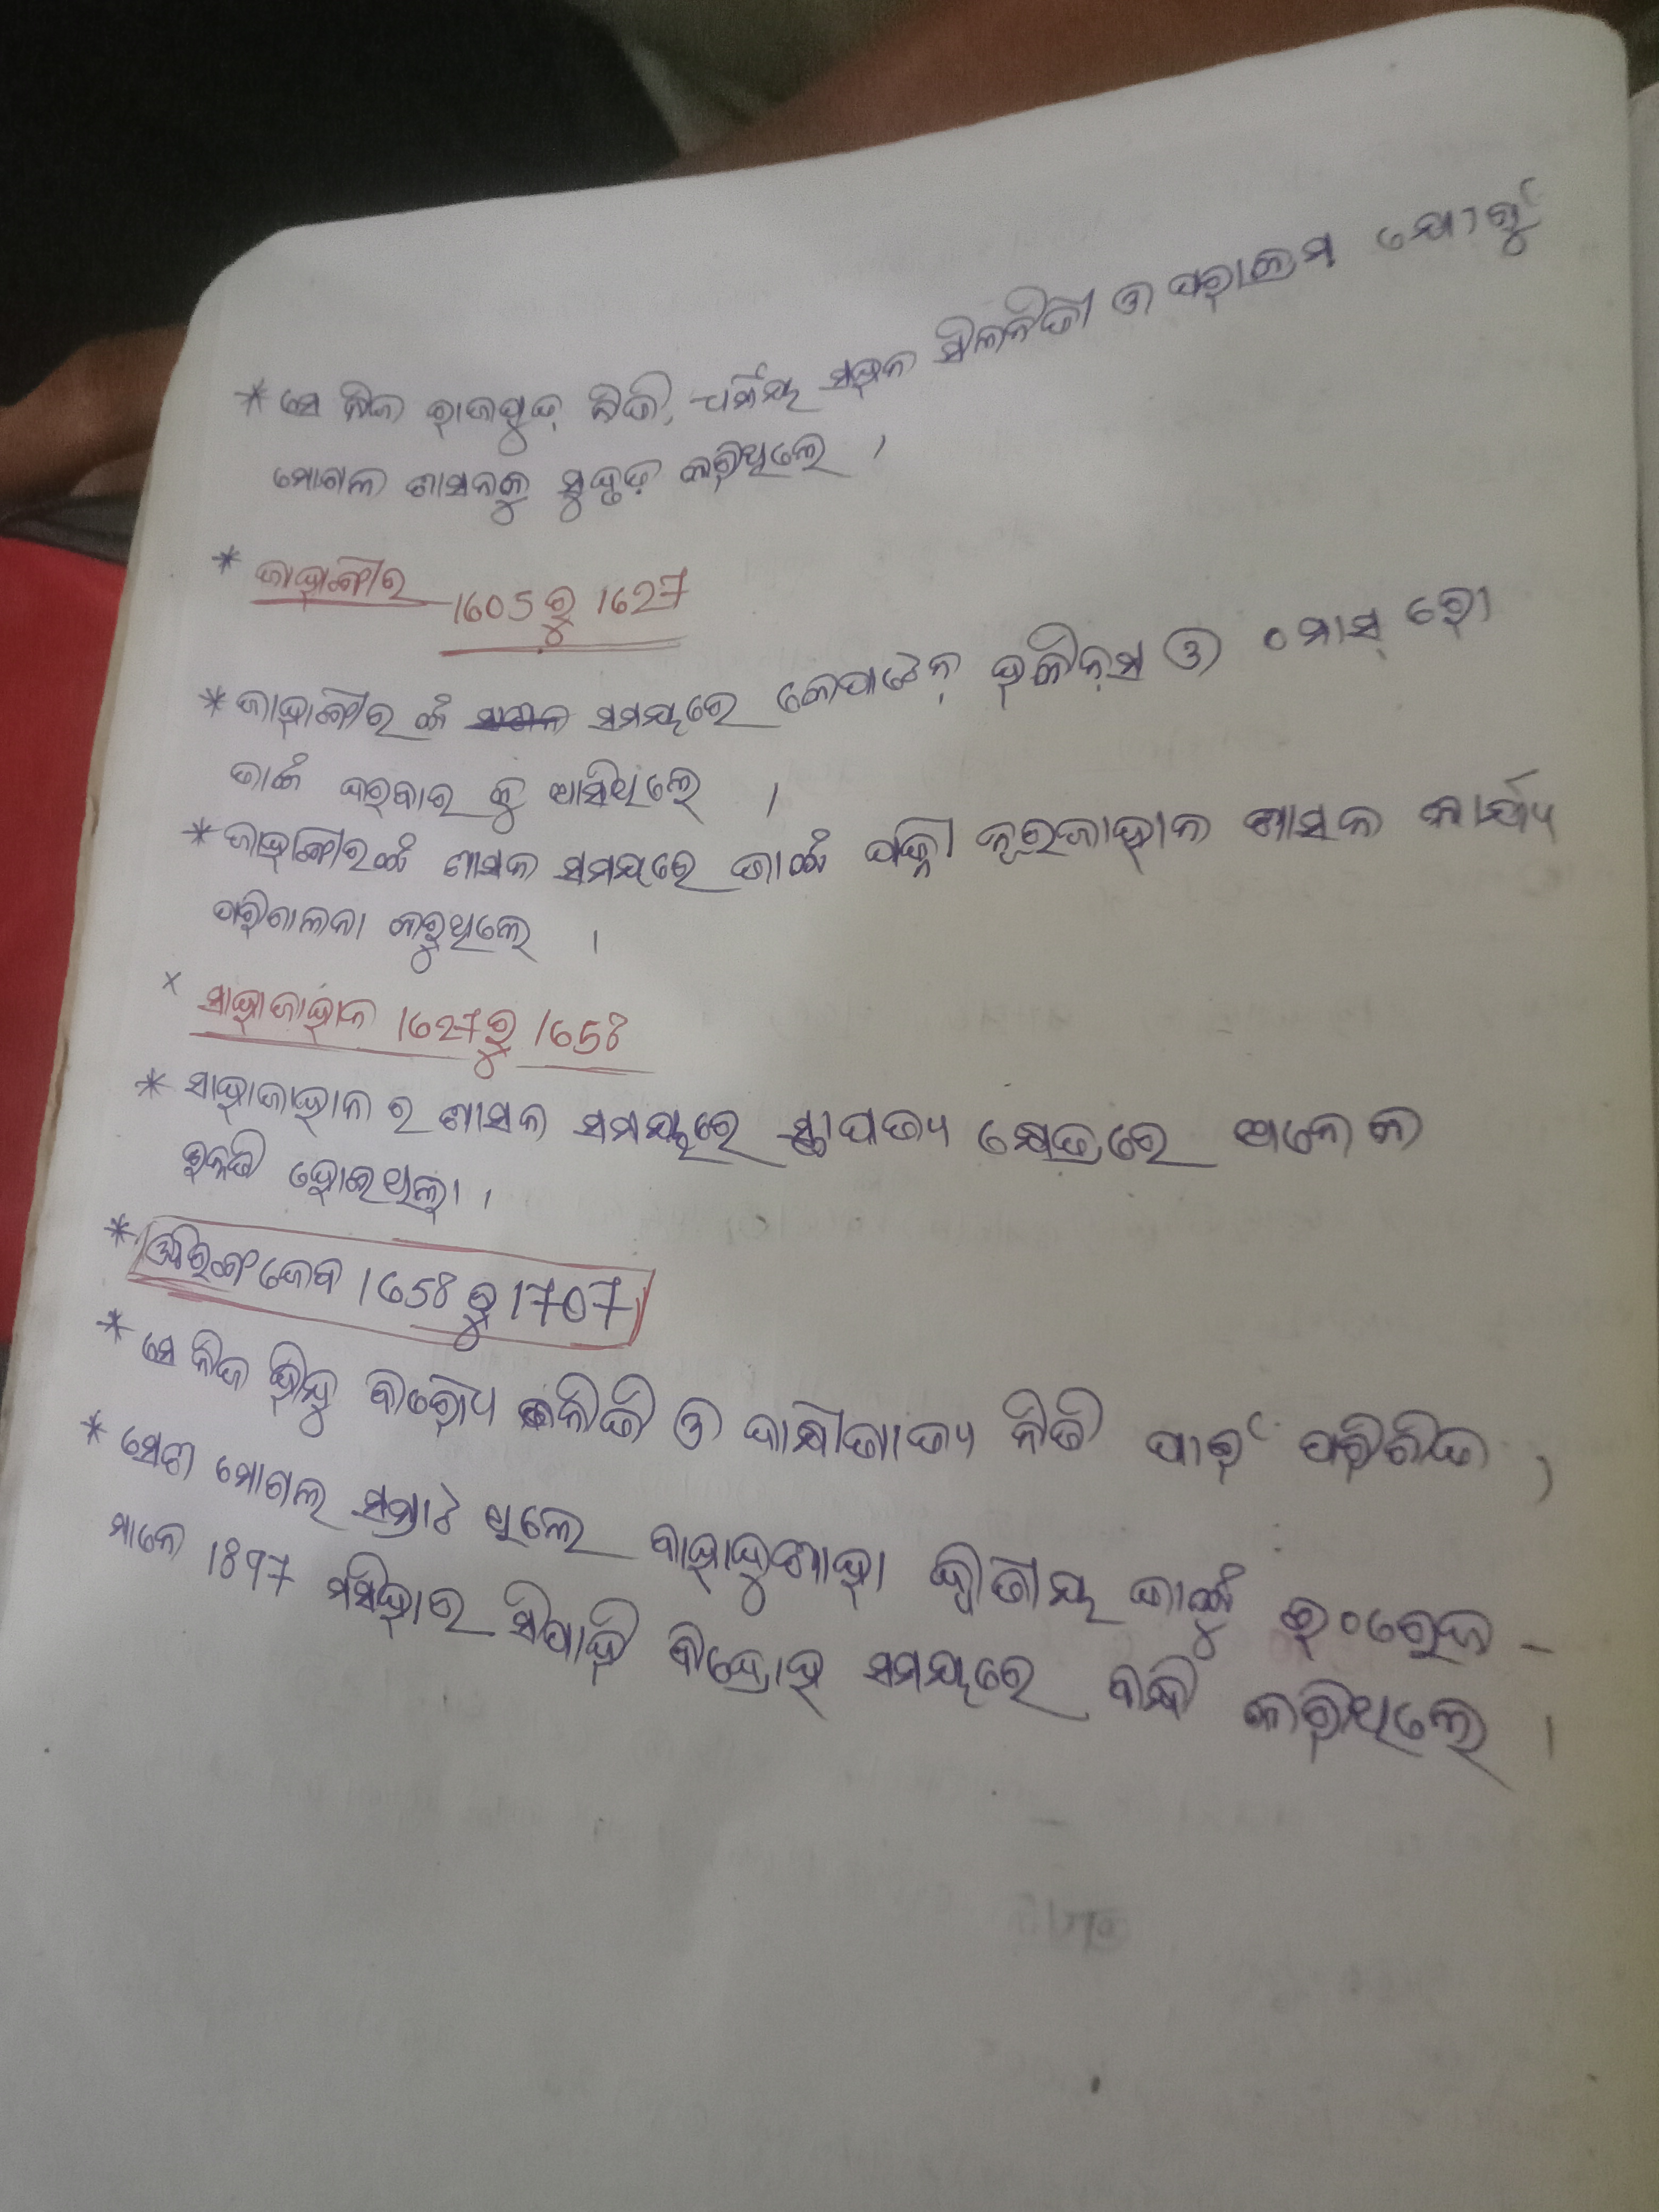 * ସେ ନିଜ ରାଜପୁତ୍ ନିତି, ଧର୍ମିୟ ସହନ ସିଳନିତୀ ଓ ପରାକ୍ରମ ଯୋଗୁଁ
ମୋଗଲ ଶାସନକୁ ସୁଦୃଢ଼ କରିଥିଲେ ।
* ଜାହାଙ୍ଗୀର 1605 ରୁ 1627
* ଜାହାଙ୍ଗୀର ଙ୍କ ସମୟରେ କେପାଟେନ୍ ହକିନ୍ସ ଓ ଠମାସ୍ ରୋ
ତାଙ୍କ ଦରବାର କୁ ଆସିଥିଲେ ।
* ଜାହାଙ୍ଗୀରଙ୍କ ଶାସନ ସମୟରେ ତାଙ୍କ ପତ୍ନୀ ନୂରଜାହାନ ଶାସନ କାର୍ଯ୍ୟ
ପରିଚାଳନା କରୁଥିଲେ ।
x ସାହାଜାହାନ 1627ରୁ 1658
* ସାହାଜାହାନ ର ଶାସନ ସମୟରେ ସ୍ଥାପତ୍ୟ କ୍ଷେତ୍ରରେ ଅନେକ
ହୋଇଥିଲା ।
* ଔରଙ୍ଗଜେବ 1658 ରୁ 1707
* ସେ ନିଜ ହିନ୍ଦୁ ବିରୋଧ ନିତି ଓ ଦାକ୍ଷୀଣାତ୍ୟ ନିତି ପାଇଁ ପରିଚିତ ।
* ଶେଷ ମୋଗଲ ସମ୍ରାଟ ଥିଲେ ବାହାଦୁରଶାହା ଦ୍ୱିତୀୟ ତାଙ୍କୁ ଇଂରେଜ -
ମାନେ 1897 ମସିହାର ସିପାହି ବିଦ୍ରୋହ ସମୟରେ ବନ୍ଧି କରିଥିଲେ ।